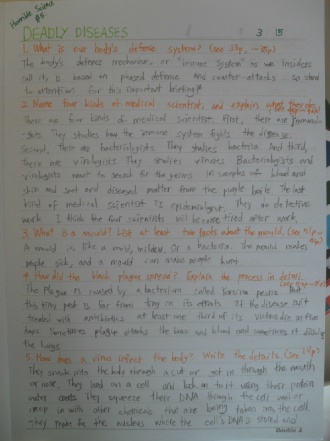 Horrible Science
#5
DEADLY DISEASES 3 15
1. What is our body's defense system? (see 33p, ~ 35p)
The body's defence mechanism, or "immune system" as we insiders
call it, is based on phased defence and counter-attacks. so stand
to attention for this important briefing!
2. Name four kinds of medical scientist, and explain what they do.
There are four kinds of medical scientist. First, there are immunolo-
gists. They studies how the immune system fights the disease.
Second, There are bacteriologists. They studies bacteria. And third,
there are virologists. They studies viruses. Bacteriologists and
virologists want to search for the germs in samples of blood and
skin and spit and diseased matter from the people's boils. The last
kind of medical scientist is epidemiologist. They do detective
work. I think the four scientists will become tired after work.
3. What is a mould? List at least two facts about the mould. (see
A mould is like a mold, mildew, or a bacteria. The mould makes
people sick, and a mould can make people hurt.
4. How did the black plague spread? Explain the process in detail.
The Plague is caused by a bacterium called Yersina pestis. But
this tiny pest is far from tiny in its effects. If the disease isn't
treated with antibiotics at least one third of its victims die in five
days. Sometimes plague attacks the brain and blood and sometimes it
the lungs.
5. How does a virus infect the body? Write the details. (see
They sneak into the body through a cut or get in through the mouth
or nose. They land on a cell and lock on to it using their protein
outer coats. They squeeze there DNA through the cell wall or
creep in with other chemicals that are being taken into the cell.
They make for the nucleus where the cell's DNA is stored and